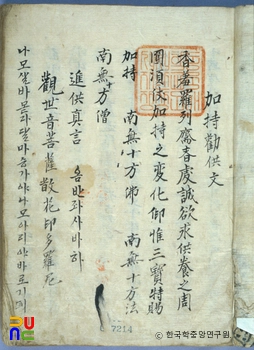 加持勸供文
香羞羅列齋者虔誠欲求供養之周
圓須仗加持之變化仰惟三寶特賜
加持 南無十方佛 南無十方法
南無十方僧
進供真言 옴반자사바하
觀世音菩薩散花印多羅尼
7214
한국학중앙연구원